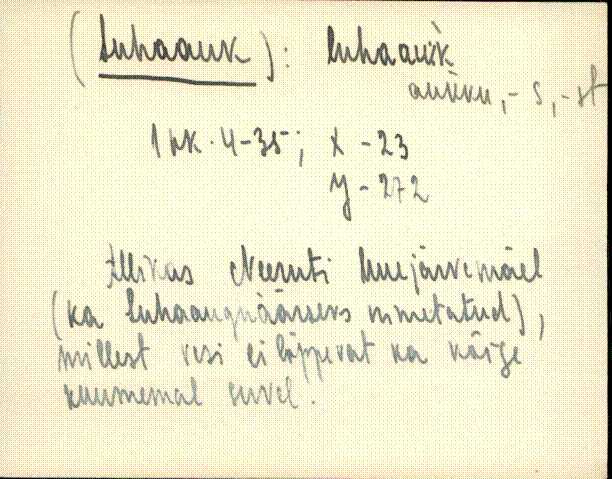 (Luhaauk): luhaauk
auku, -s, -st
1 kk. 4-35; X - 23
Y - 272
Allikas Neeruti mäel
(ka nimetatud),
millest vesi ei lõppevat ka kõige
kuumemal suvel.